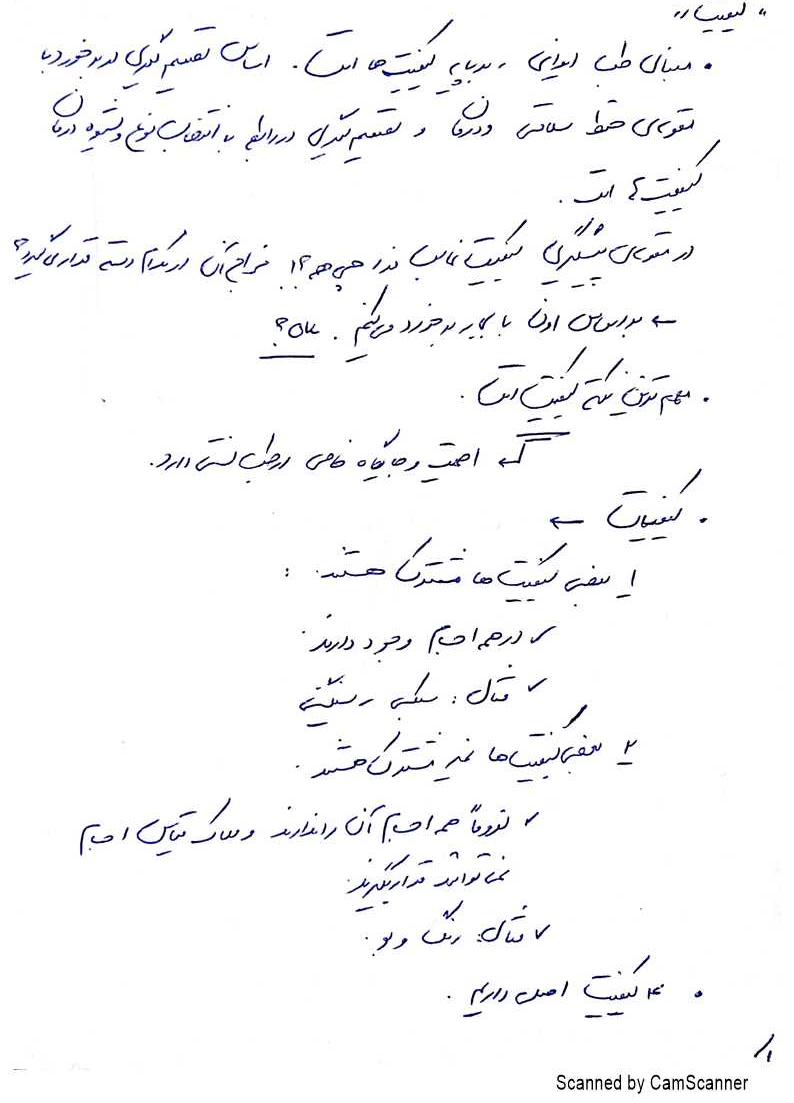 "کیفیات"
• مبنای طب ایرانی، بر پایه کیفیت‌ها است. اساس تصمیم گیری در برخورد با
مقوله‌ی حفظ سلامتی و درمان و تصمیم‌گیری در رابطه با انتخاب نوع و شیوه درمان
کیفیت‌ها است.
در مقوله‌ی پیشگیری کیفیت غالب غذا چی هه؟! مزاج آن در کدام دسته قرار می‌گیرد؟
← بر اساس اون با بیمار برخورد می‌کنیم. OK؟
• مهم ترین نکته کیفیت است.
← اهمیت و جایگاه خاصی در طب سنتی دارد.
• کیفیات ←
۱ بعضی کیفیت ها مشترک هستند:
✓ در همه اجسام وجود دارند.
✓ مثال: سبکی، سنگینی
۲ بعضی کیفیت‌ها غیر مشترک هستند.
✓ لزوماً همه اجسام آن را ندارند و ملاک قیاس اجسام
نمی‌توانند قرار بگیرند.
✓ مثال: رنگ و بو.
• ۴ کیفیت اصلی داریم.
۱/
Scanned by CamScanner